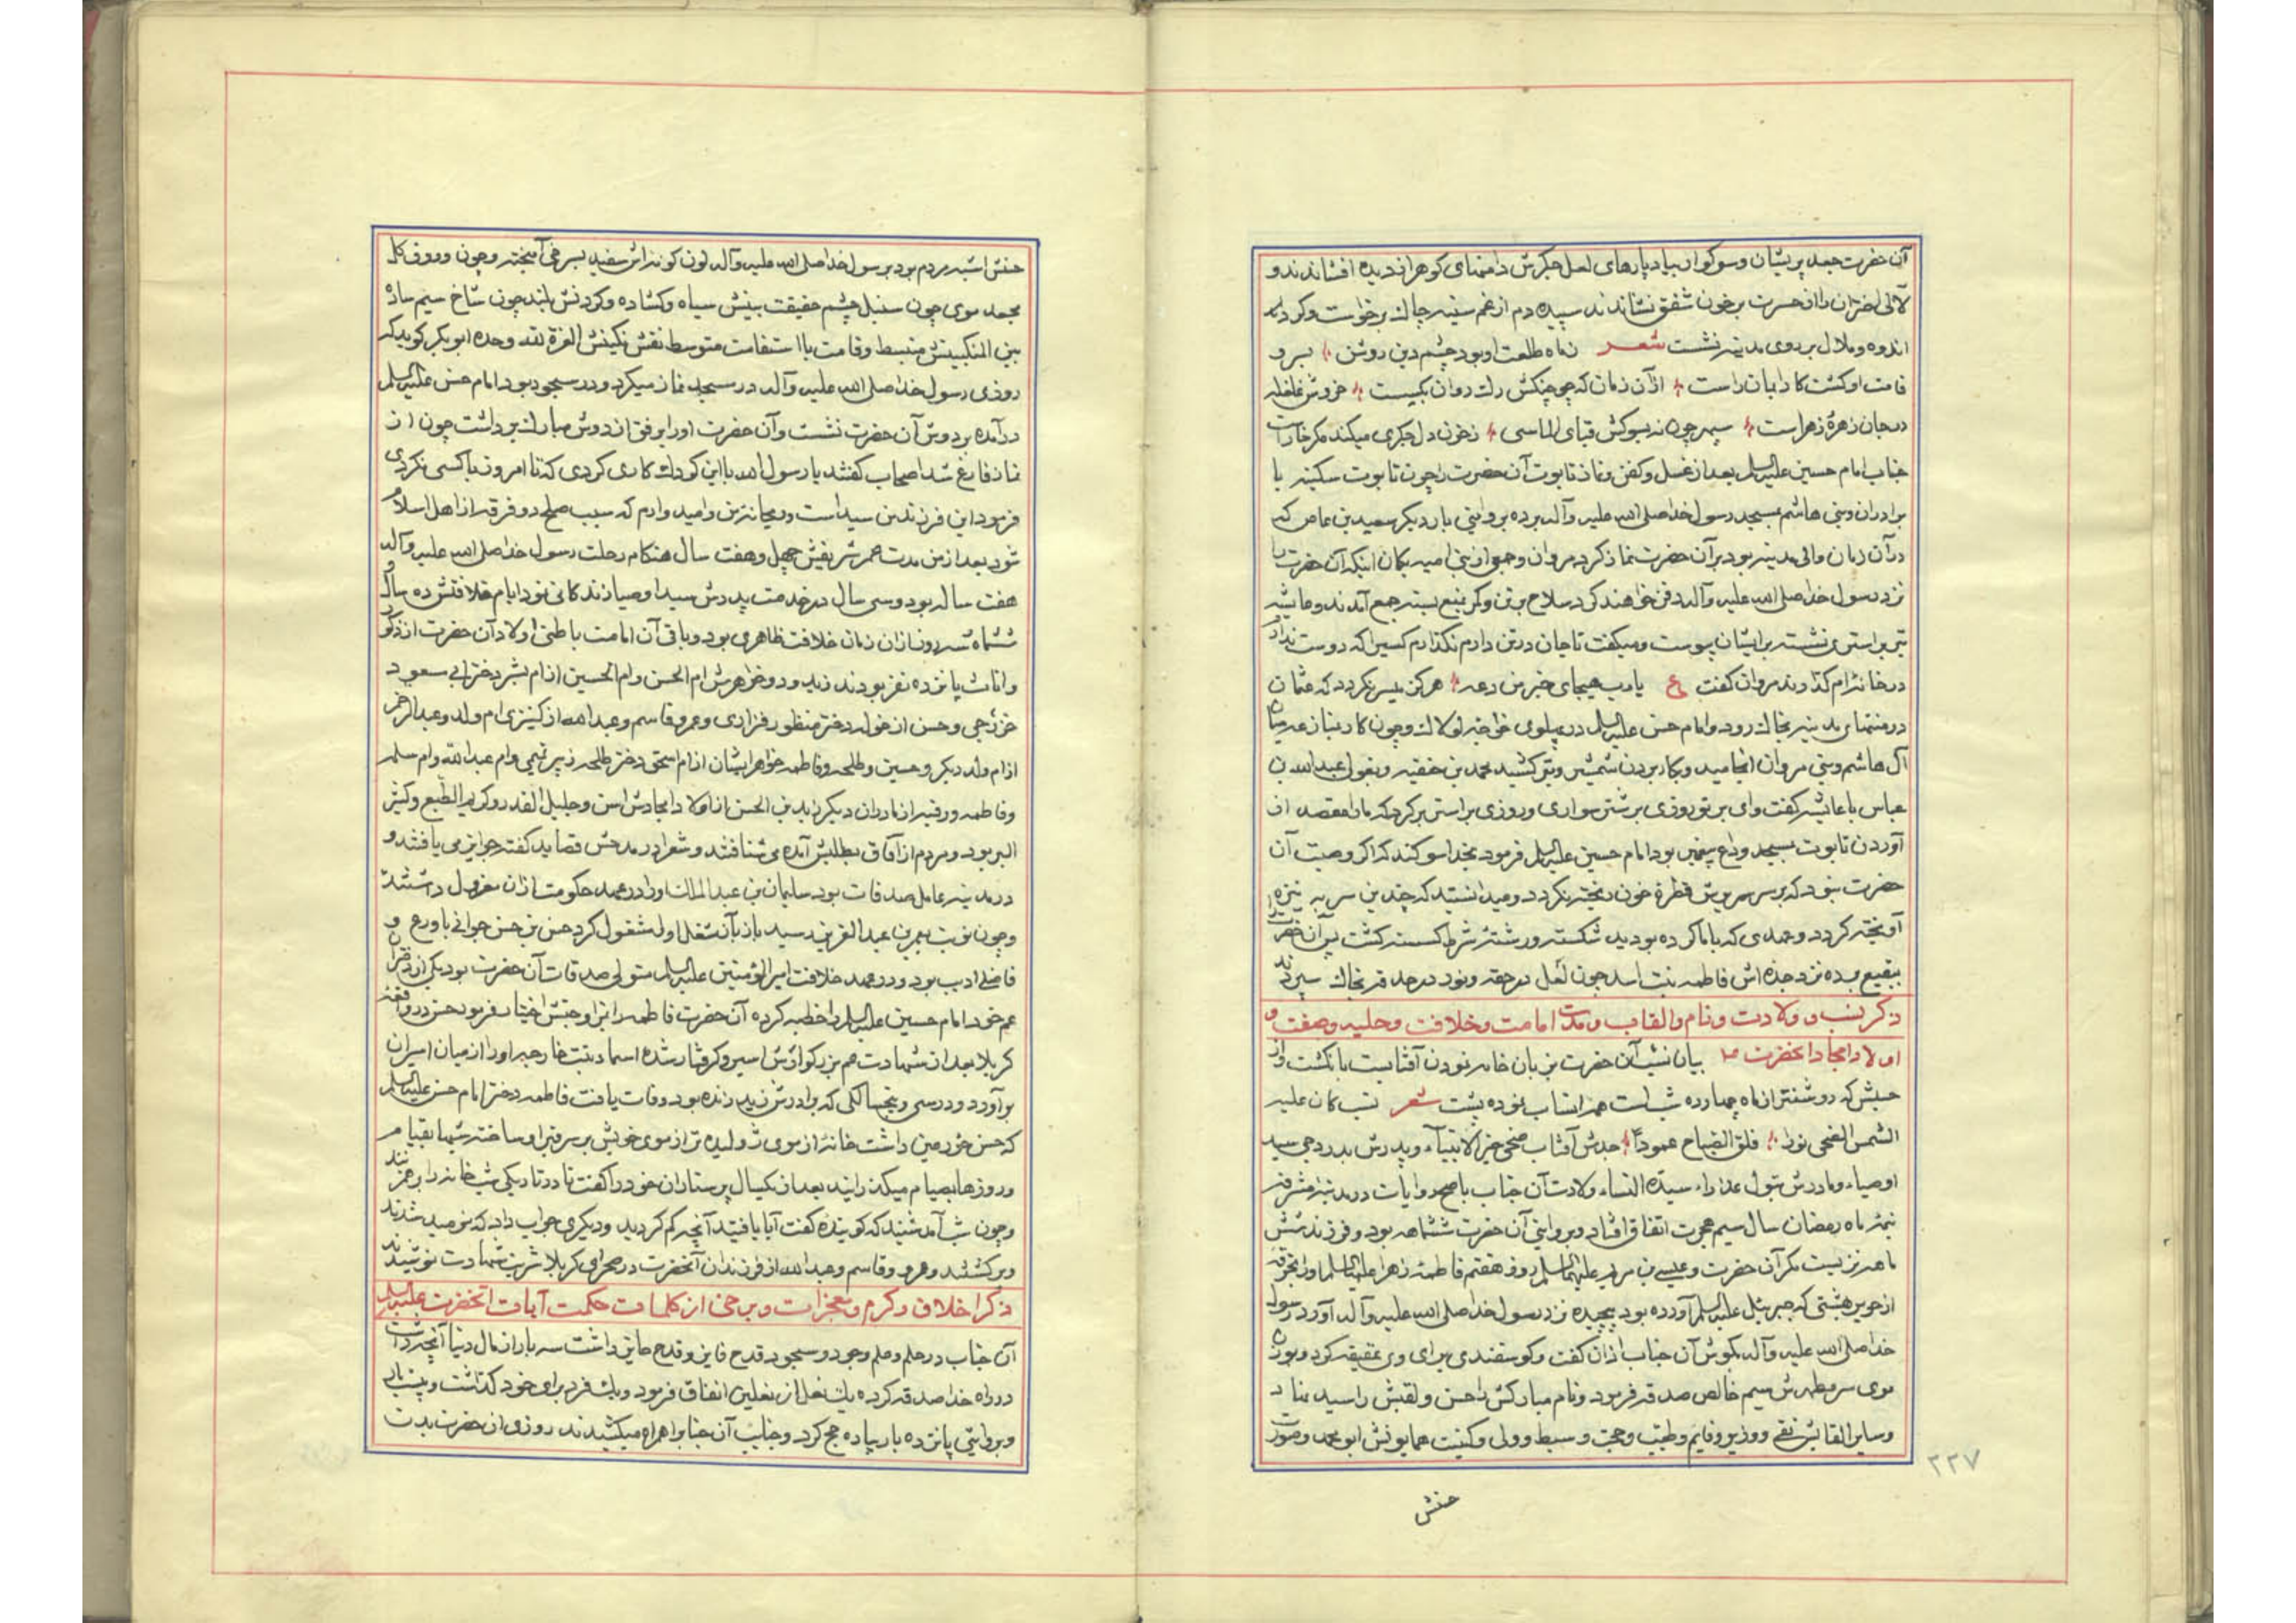 آن حضرت جعد پریشان و سوکوار بیاد پارهای لعل جکرش دامنهای کوهر از دیده افشاندند و
لآلی اختران را از حسرت بر خون شفق نشاندند سپیده دم از غم سینه چاک برخواست و کرد
اندوه و ملال بر روی مدینه نشست شعر ز ماه طلعت او بود چشم دین روشن بسرو
قامت او کشت کار ایمان راست از آن زمان که چو چنکش رک روان بکسست خروش غلغله
در جان زهرهٔ زهراست سپهر چون نه بپوکش قبای الماسی ز خون دل جکری میکند مکر خاراست
جناب امام حسین علیه السلم بعد از غسل و کفن و نماز تابوت آن حضرت را چون تابوت سکینه با
برادران و بنی هاشم بمسجد رسول خدا صلی الله علیه وآله برده بروایتی بار دیکر سعید بن عاص که
در آن زمان والی مدینه بود بر آن حضرت نماز کرد مروان و جمعی از بنی امیه بکمان اینکه آن حضرت را
نزد رسول خدا صلی الله علیه وآله دفن خواهند کرد سلاح بر تن و کمر بتیغ بسته جمع آمدند و عایشه
نیز بر استری نشسته بر ایشان پیوست و میکفت تا جان در تن دارم نکذارم کسیرا که دوست ندارم
در خانه ام کذارند مروان کفت ع یا رب هیجای خیر من دعه هرکز میسر نکردد که عثمان
در منتهای مدینه بخاک رود و امام حسن علیه السلم در پهلوی خواجه لولاک و چون کار بنازعه میان
آل هاشم و بنی مروان انجامید و بکار بردن شمشیر و تیر کشید محمد بن حنفیه و بقول عبدالله بن
عباس با عایشه کفت وای بر تو روزی بر شتر سواری و روزی بر استر برکرد که ما را مقصد از
آوردن تابوت بمسجد وداع پیغمبر بود امام حسین علیه السلم فرمود بخدا سوکند که اکر وصیت آن
حضرت نبود که بر سر من قطرهٔ خون ریخته نکردد و میدانستید که چندین سر به نیزه
آویخته کردد و عهدی که با ما کرده بودید شکسته و رشتهٔ شرط کسسته کشت پس آن حضرت را
ببقیع برده نزد جده اش فاطمه بنت اسد چون لعل در حقه و نور در حدقه بخاک سپردند
ذکر نسب و ولادت و نام و القاب و مدت امامت و خلافت و حلیه و صفت و
اولاد امجاد انحضرت بیان نسب آن حضرت بزبان خامه نمودن آفتابست بانکشت و از
حسبش که روشنتر از ماه چهارده شب است همه انتساب نموده پشت شعر نسب کان علیه
الشمس الضحی نورا فلق الصباح عمودا جدش آفتاب ضحی خیر الانبیآء و پدرش بدر دجی سید
اوصیاء و مادرش بتول عذراء سیدة النساء ولادت آن جناب باصح روایات در مدینهٔ مشرفه
نیمهٔ ماه رمضان سال سیم هجرت اتفاق افتاد و بروایتی آن حضرت ششماهه بود و فرزند شش
ماهه نزیست مکر آن حضرت و عیسی بن مریم علیهما السلم روز هفتم فاطمهٔ زهرا علیها السلم او را بخرقهٔ
از حریر بهشتی که جبرئیل علیه السلم آورده بود پیچیده نزد رسول خدا صلی الله علیه وآله آورد رسول
خدا صلی الله علیه وآله بکوش آن جناب اذان کفت و کوسفندی برای وی عقیقه کرد و بوزن
موی سر مطهرش سیم خالص صدقه فرمود و نام مبارکش را حسن و لقبش را سید نهاد
و سایر القابش نقی و وزیر و قایم و طیب و حجت و سبط و ولی و کنیت همایونش ابو محمد و صورت
۲۲۷
حسنش
حسنش اشبه مردم بود برسول خدا صلی الله علیه وآله لون کونه اش سفید بسرخی آمیخته و چون ورق کل
مجعد موی چون سنبل چشم حقیقت بینش سیاه و کشاده و کردنش بلند چون شاخ سیم ساده
بین المنکبینش منبسط و قامت با استقامت متوسط نقش نکینش العزة لله وحده ابو بکر کوید که
روزی رسول خدا صلی الله علیه وآله در مسجد نماز میکرد و در سجود بود امام حسن علیه السلم
درآمده بر دوش آن حضرت نشست و آن حضرت او را برفق از دوش مبارک برداشت چون از
نماز فارغ شد اصحاب کفتند یا رسول الله با این کودک کاری کردی که تا امروز با کسی نکردی
فرمود این فرزند من سید است و ریحانهٔ من و امیدوارم که سبب صلح دو فرقه از اهل اسلام
شود بعد از من مدت عمر شریفش چهل و هفت سال هنکام رحلت رسول خدا صلی الله علیه وآله
هفت ساله بود و سی سال در خدمت پدرش سید اوصیا زندکانی نمود ایام خلافتش ده سال و
ششماه سه روز از ان زمان خلافت ظاهری بود و باقی آن امامت باطنی اولاد آن حضرت از ذکور
و اناث پانزده نفر بودند زید و دو خواهرش ام الحسن و ام الحسین از ام بشر دختر ابی سعود
خزرجی و حسن از خوله دختر منظور فزاری و عمرو قاسم و عبدالله از کنیزی ام ولد و عبدالرحمن
از ام ولد دیکر و حسین و طلحه و فاطمه خواهر ایشان از ام اسحق دختر طلحه زبیر تیمی و ام عبدالله و ام سلمه
و فاطمه و رقیه از مادران دیکر زید بن الحسن از اولاد امجادش اسن و جلیل القدر و کریم الطبع و کثیر
البر بود و مردم از آفاق بطلبش آمده می شتافتند و شعرا در مدحش قصاید کفته جوایز می یافتند و
در مدینه عامل صدقات بود سلیمان بن عبدالملک او را در عهد حکومت از ان معزول داشت
و چون نوبت بعمر بن عبدالعزیز رسید باز بآن شغل او مشغول کرد حسن بن حسن جوانی با ورع و
فاضل ادیب بود و در عهد خلافت امیرالمؤمنین علیه السلم متولی صدقات آن حضرت بود یکی از دختران
عم خود امام حسین علیه السلم را خطبه کرده آن حضرت فاطمه را بزوجیتش اختیار فرمود حسن در واقعهٔ
کربلا بعد از شهادت عم بزرکوارش اسیر و کرفتار شده اسماء بنت خارجه او را از میان اسیران
برآورد و در سی و پنجسالکی که برادرش زید زنده بود وفات یافت فاطمه دختر امام حسین علیه السلم
که حسن خود مین داشت خانهٔ از موی ژولیده تر از موی خویش بر سر قبر او ساخته شبها بقیام
و روزها بصیام میکذرانید بعد از یکسال پرستاران خود را کفت تا در تاریکی شب خانه را برهم زنند
و چون شب آمد شنید که کویندهٔ کفت آیا یافتید آنچه کم کردید و دیکری جواب داد که نومید شدند
و برکشتند و عمرو و قاسم و عبدالله از فرزندان آنحضرت در صحرای کربلا شربت شهادت نوشیدند
ذکر اخلاق و کرم و معجزات و برخی از کلمات حکمت آیات انحضرت علیه السلم
آن جناب در حلم و علم و جود و سجود قدح فایز و قدح حایز داشت سه بار از مال دنیا آنچه داشت
در راه خدا صدقه کرده یک نعل از نعلین انفاق فرمود و یک فرد برای خود کذاشت و بیست بار
و بروایتی پانزده بار پیاده حج کرد و جنایب آن جناب را همراه میکشیدند روزی از حضرت بدت